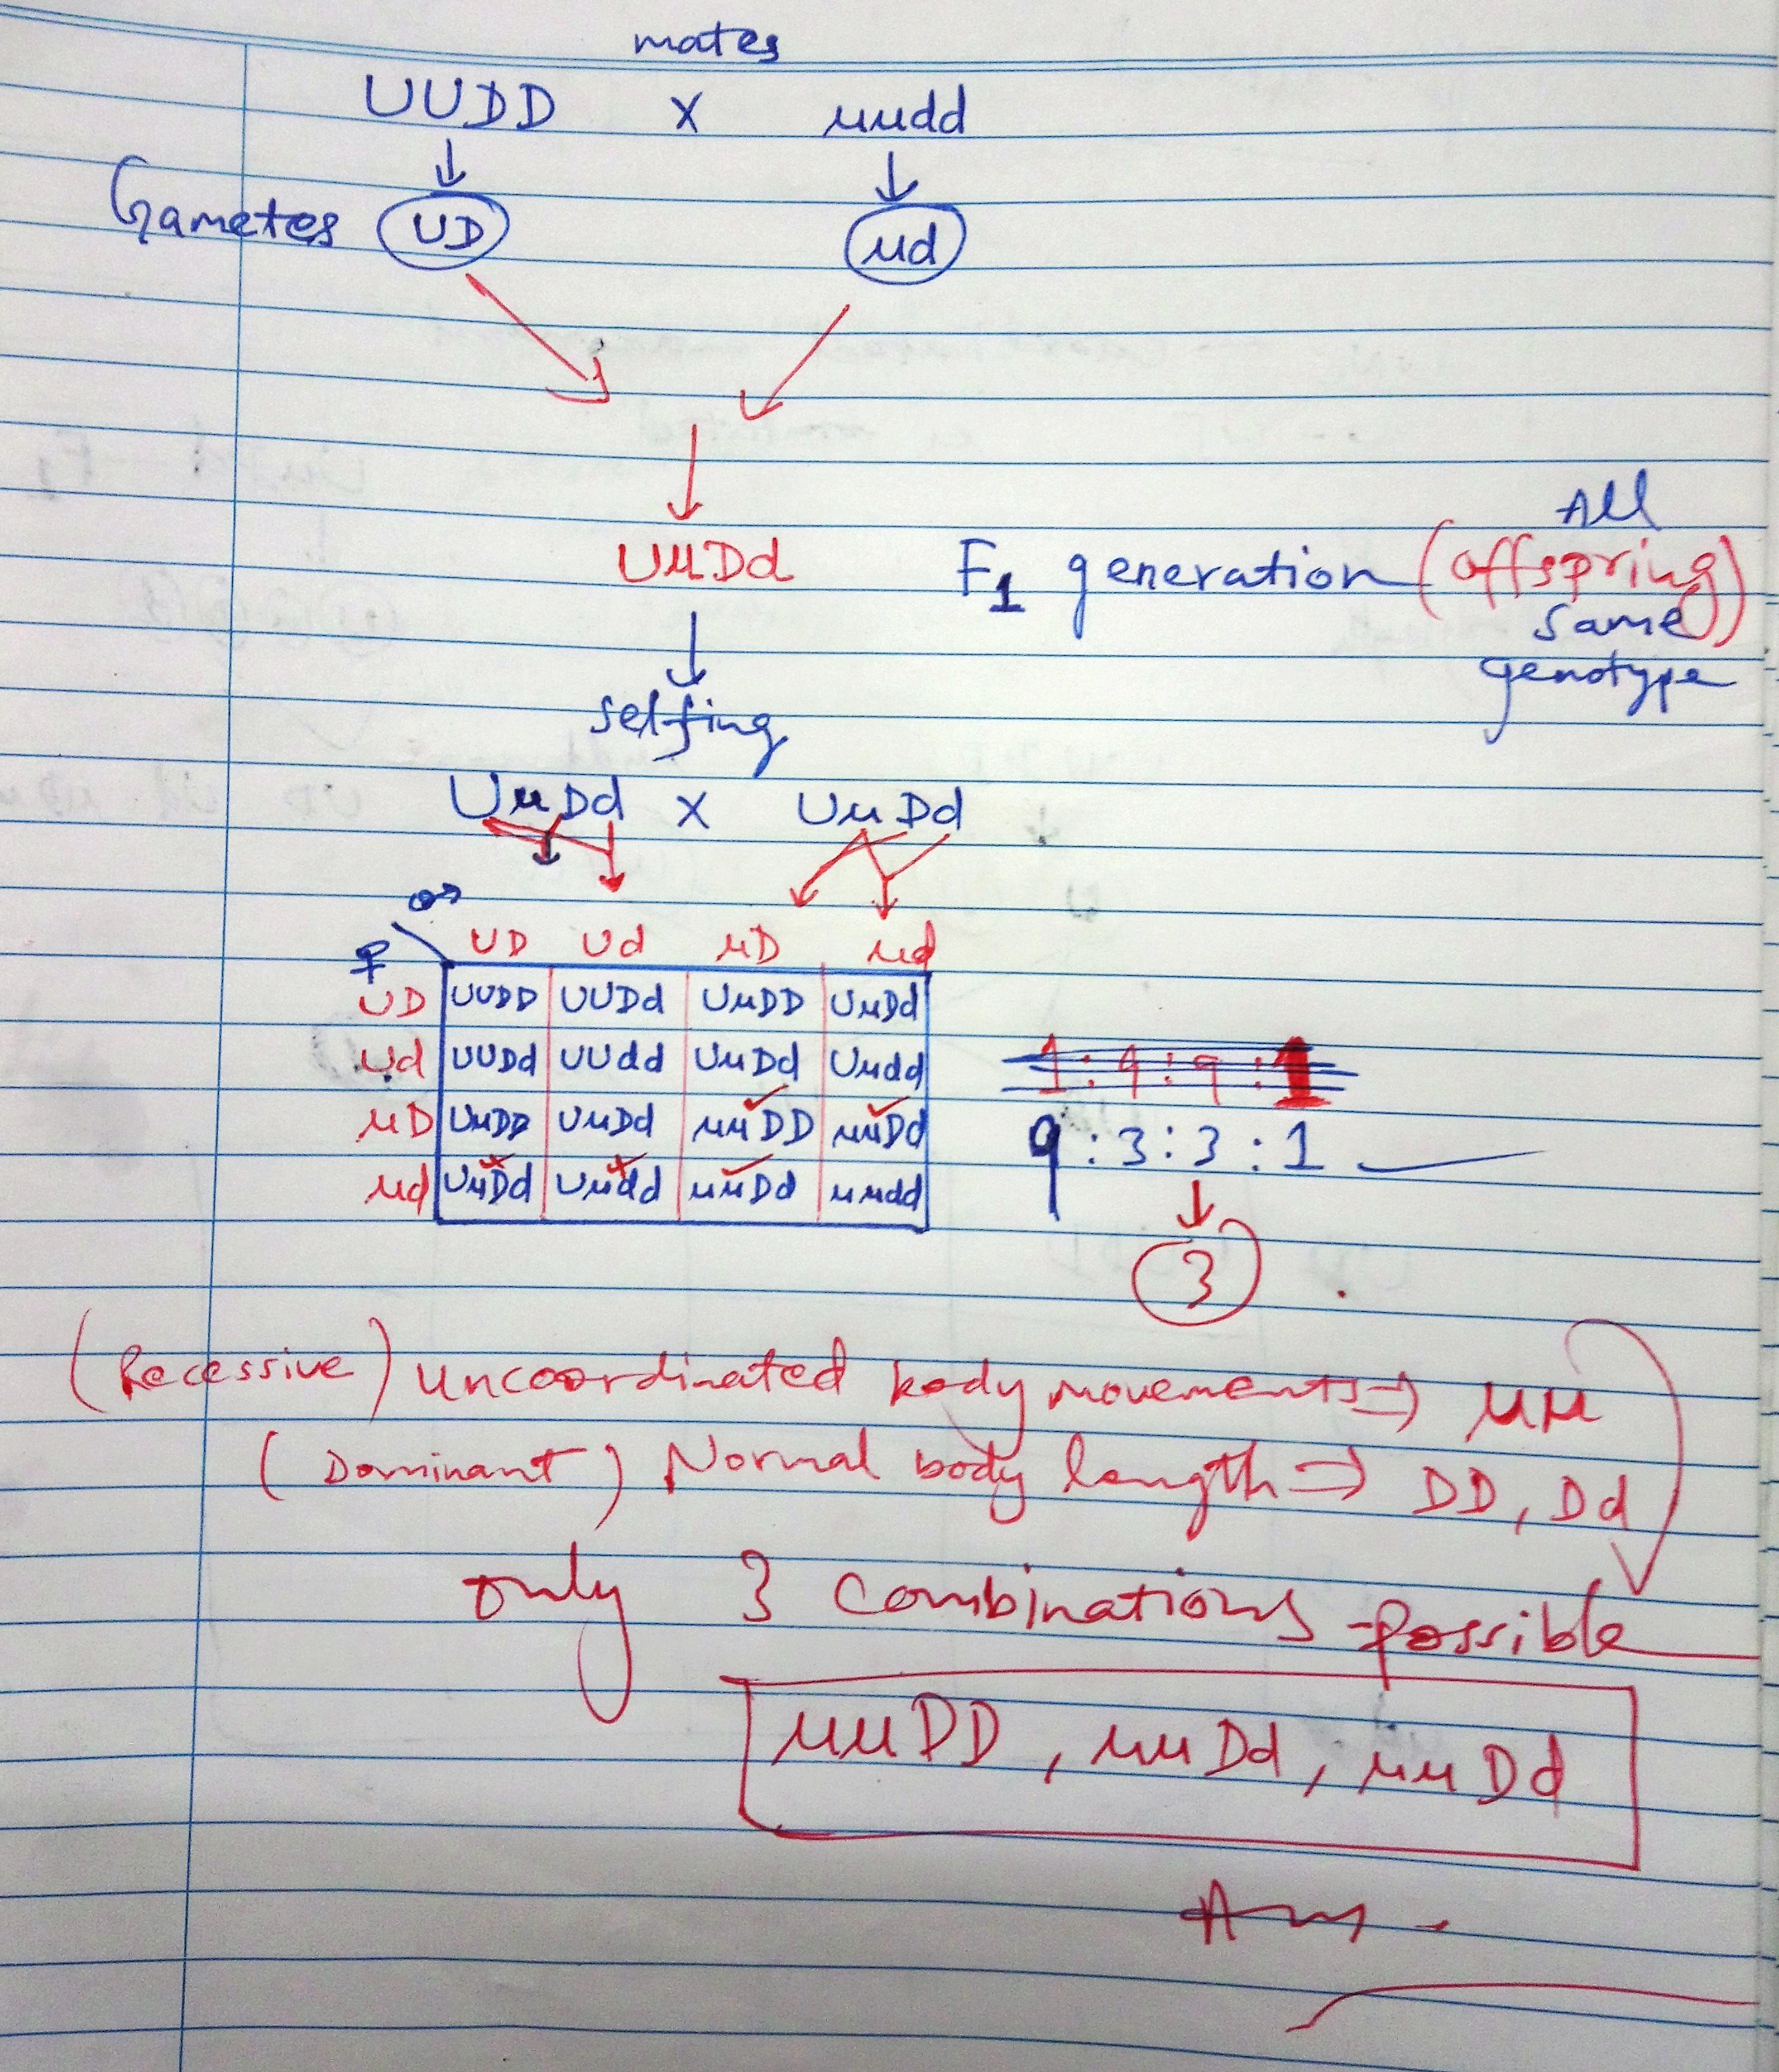 mates
UUDD x uudd
Gametes UD ud
UuDd F1 generation (offspring)
All
same
genotype
selfing
UuDd x UuDd
♂
♀ UD Ud uD ud
UD UUDD UUDd UuDD UuDd
Ud UUDd UUdd UuDd Uudd
uD UuDD UuDd uuDD uuDd
ud UuDd Uudd uuDd uudd
1:9:9:1
9:3:3:1
3
(Recessive) Uncoordinated body movements ⇒ uu
(Dominant) Normal body length ⇒ DD, Dd
only 3 combinations possible
uuDD, uuDd, uuDd
Ans.